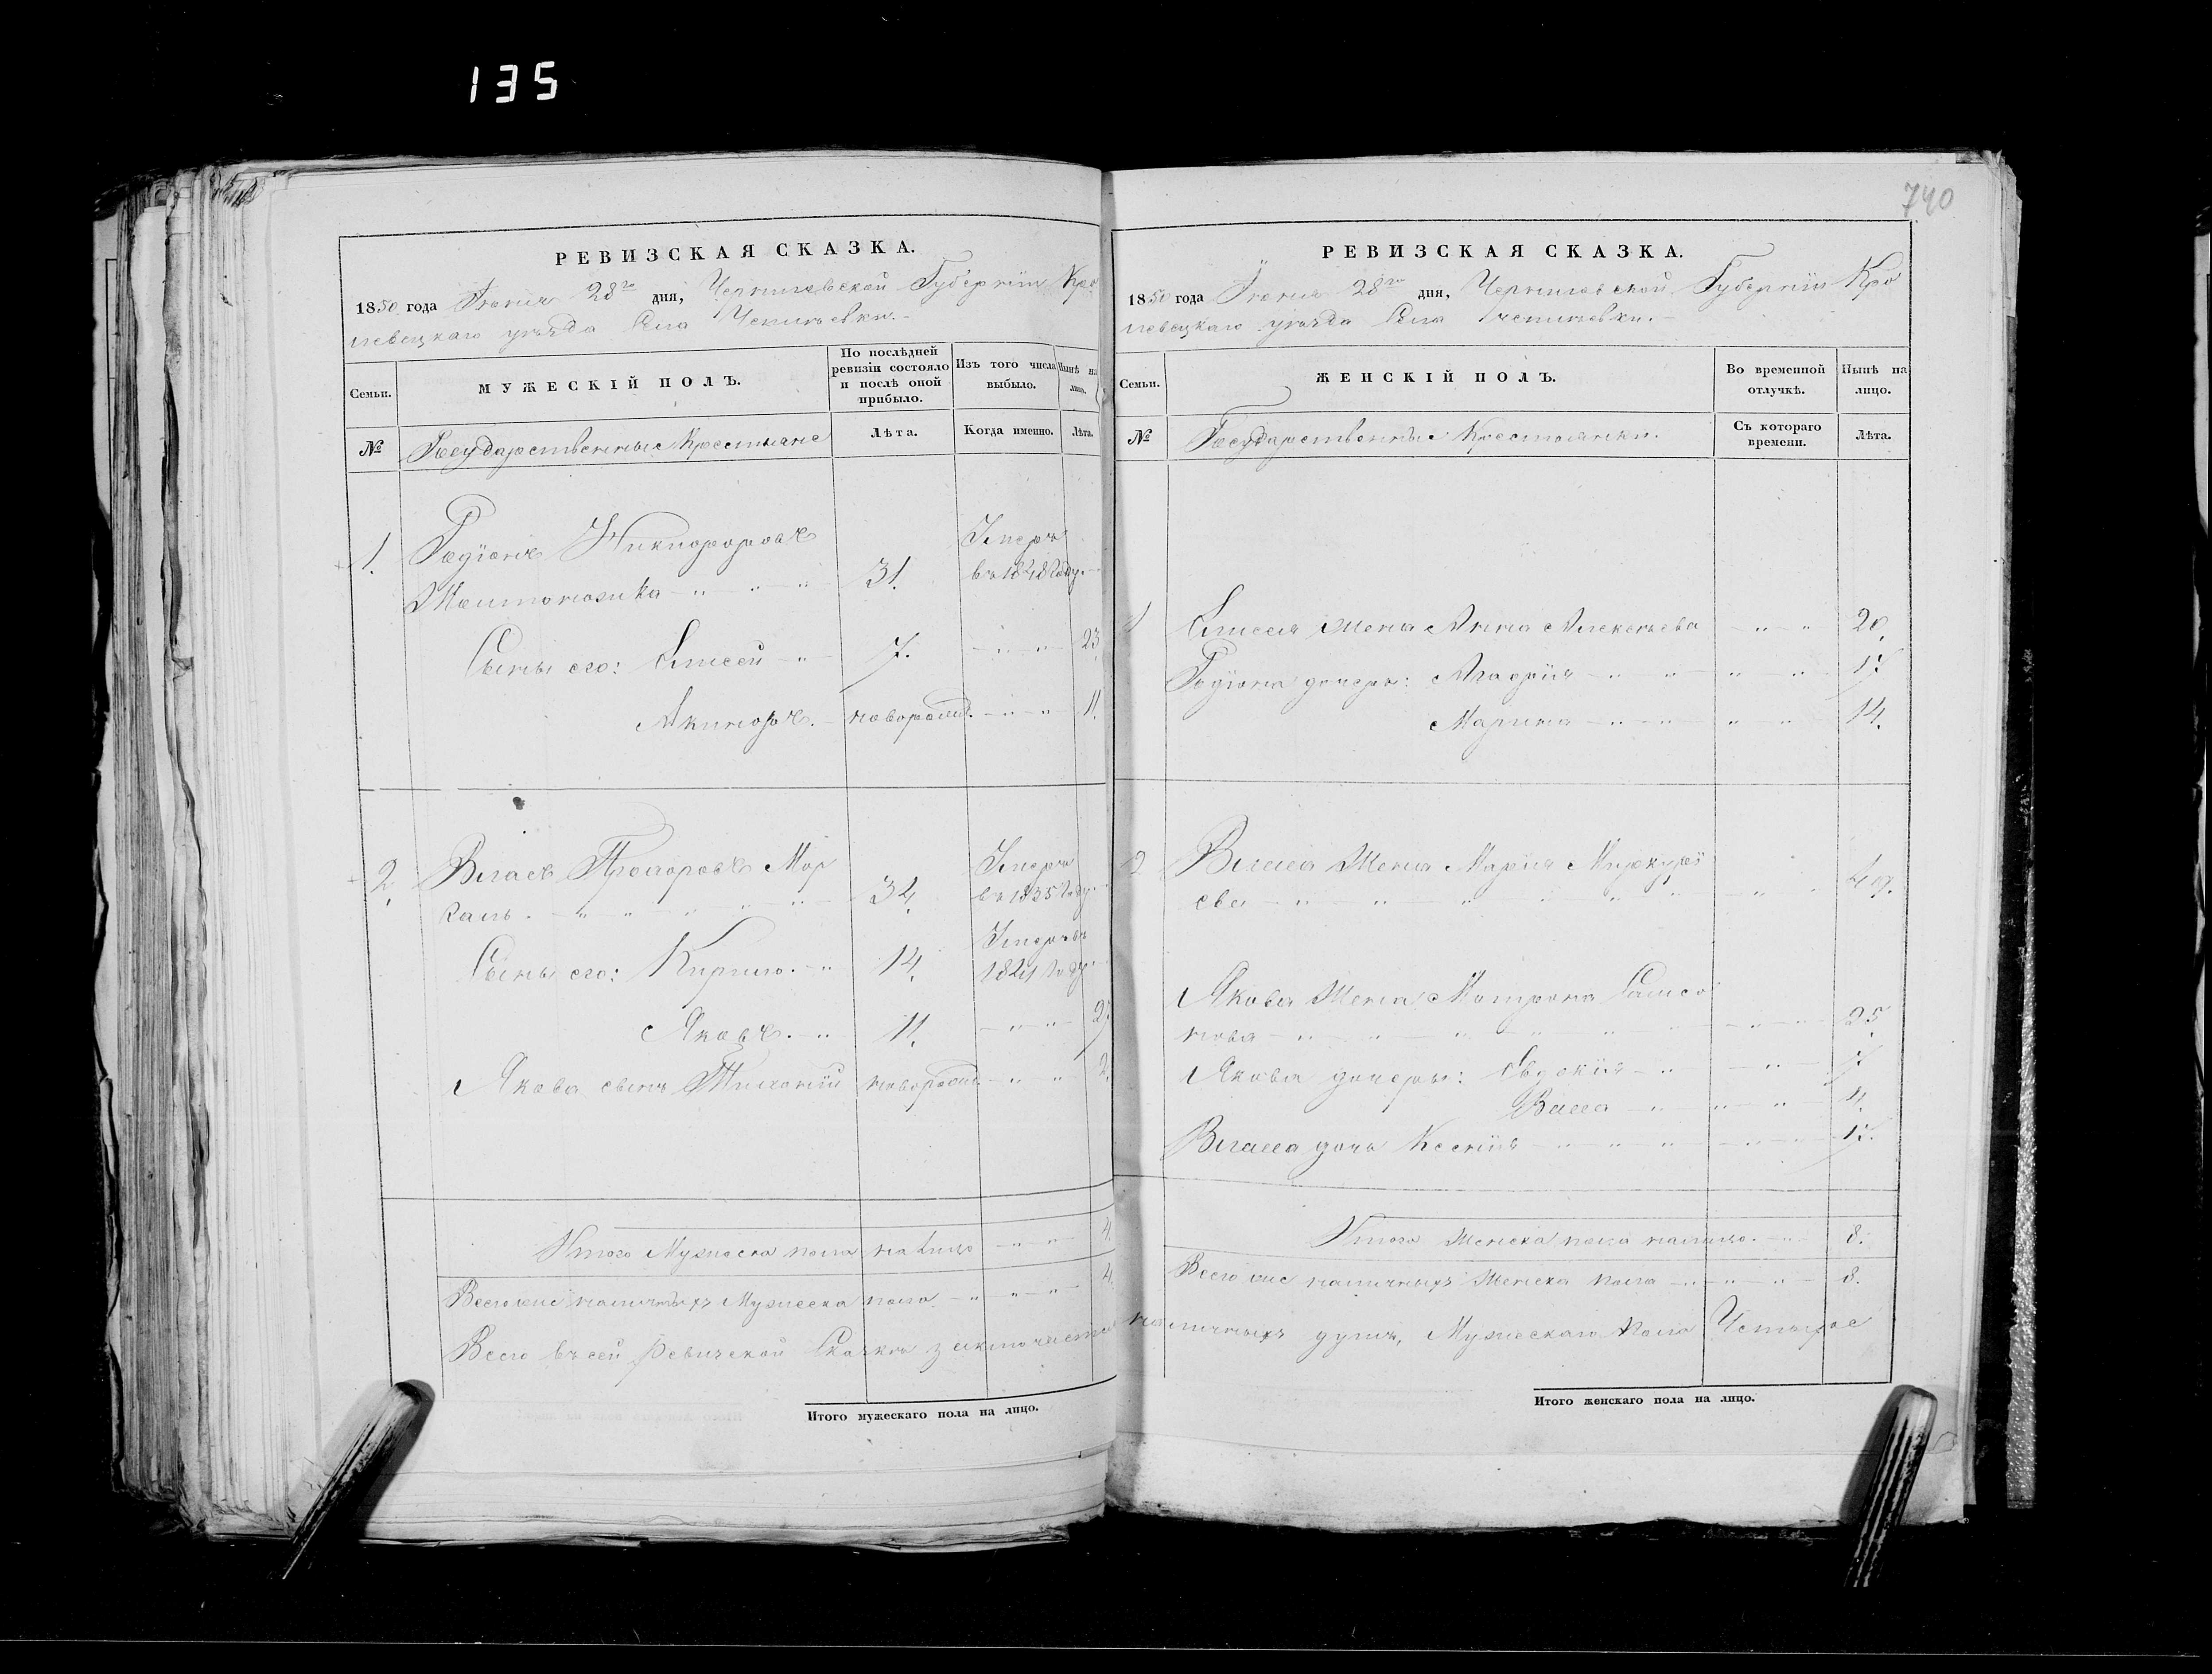 135
740
РЕВИЗСКАЯ СКАЗКА.
1850 года Іюня 28го дня, Черниговской Губерніи Кро
левецкаго уѣзда Села
Семьи.
МУЖЕСКІЙ ПОЛЪ.
По послѣдней ревизіи состояло и послѣ оной прибыло.
Изъ того числа выбыло.
Нынѣ на лицо.
№
Государственные Крестьяне
Лѣта.
Когда именно.
Лѣта.
1. Родіонъ Никифоровъ
31. Умеръ въ 1848 году.
Сыны его: Елисей 7. 23
новорожд. 11.
2. Власъ Прохоровъ Мор
каль. 34. Умеръ въ 1835 году
Сыны его: Кирило. 14. Умеръ въ 1841 году
Яковъ. 11. 27.
Якова сынъ новорожд. 2.
Итого Мужеска пола на лицо 4.
Всего же наличныхъ Мужеска пола 4.
Всего въ сей Ревизской Сказкѣ заключается
Итого мужескаго пола на лицо.
РЕВИЗСКАЯ СКАЗКА.
1850 года Іюня 28го дня, Черниговской Губерніи Кро
левецкаго уѣзда Села
Семьи.
ЖЕНСКІЙ ПОЛЪ.
Во временной отлучкѣ.
Нынѣ на лицо.
№
Государственные Крестьянки.
Съ котораго времени.
Лѣта.
1 Елисея жена Анна Алексѣева 20.
Родіона дочери: Агафія 17
Марина 14.
2 Власа жена Марія Меркурі
ева 49.
Якова жена Матрона Самсо
нова 25
Якова дочери: Евдокія 7
Васса 4.
Власа дочь Ксенія 17.
Итого женска пола налицо. 8.
Всего же наличныхъ женска пола 8.
наличныхъ душъ, Мужескаго пола Четыре
Итого женскаго пола на лицо.